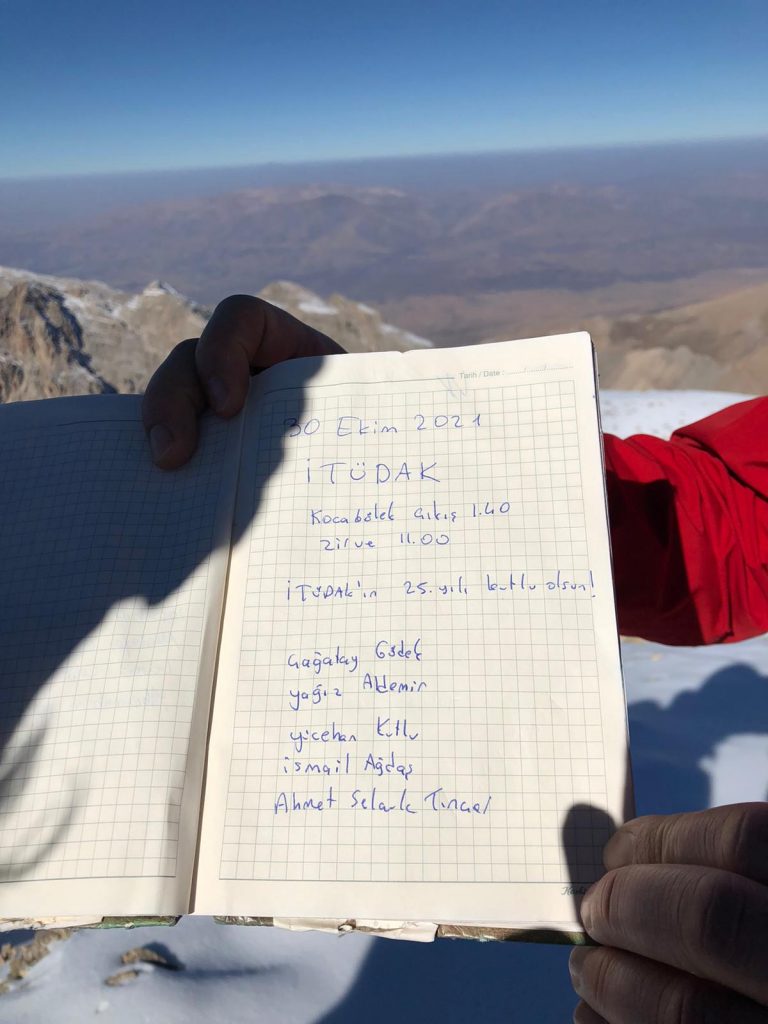 Tarih / Date :
30 Ekim 2021
İTÜDAK
Kocabölek çıkış 1.40
zirve 11.00
İTÜDAK'ın 25. yılı kutlu olsun!
Çağatay
yağız Akdemir
yücehan Kutlu
ismail Ağdaş
Ahmet Selank